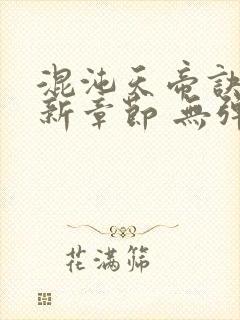 混沌天帝訣
新章節 無彈
花滿篩